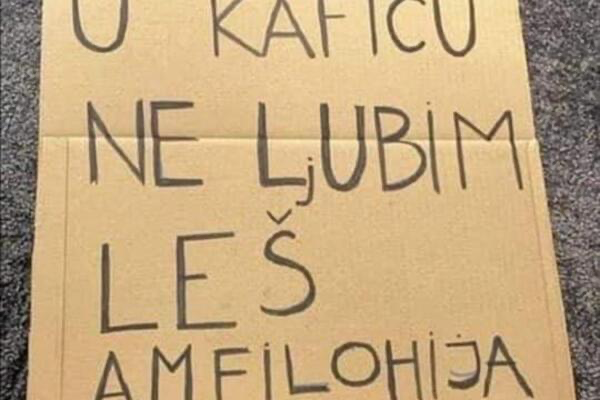 U KAFIĆU
NE LjUBiM
LEŠ
AMFiLOHiJA